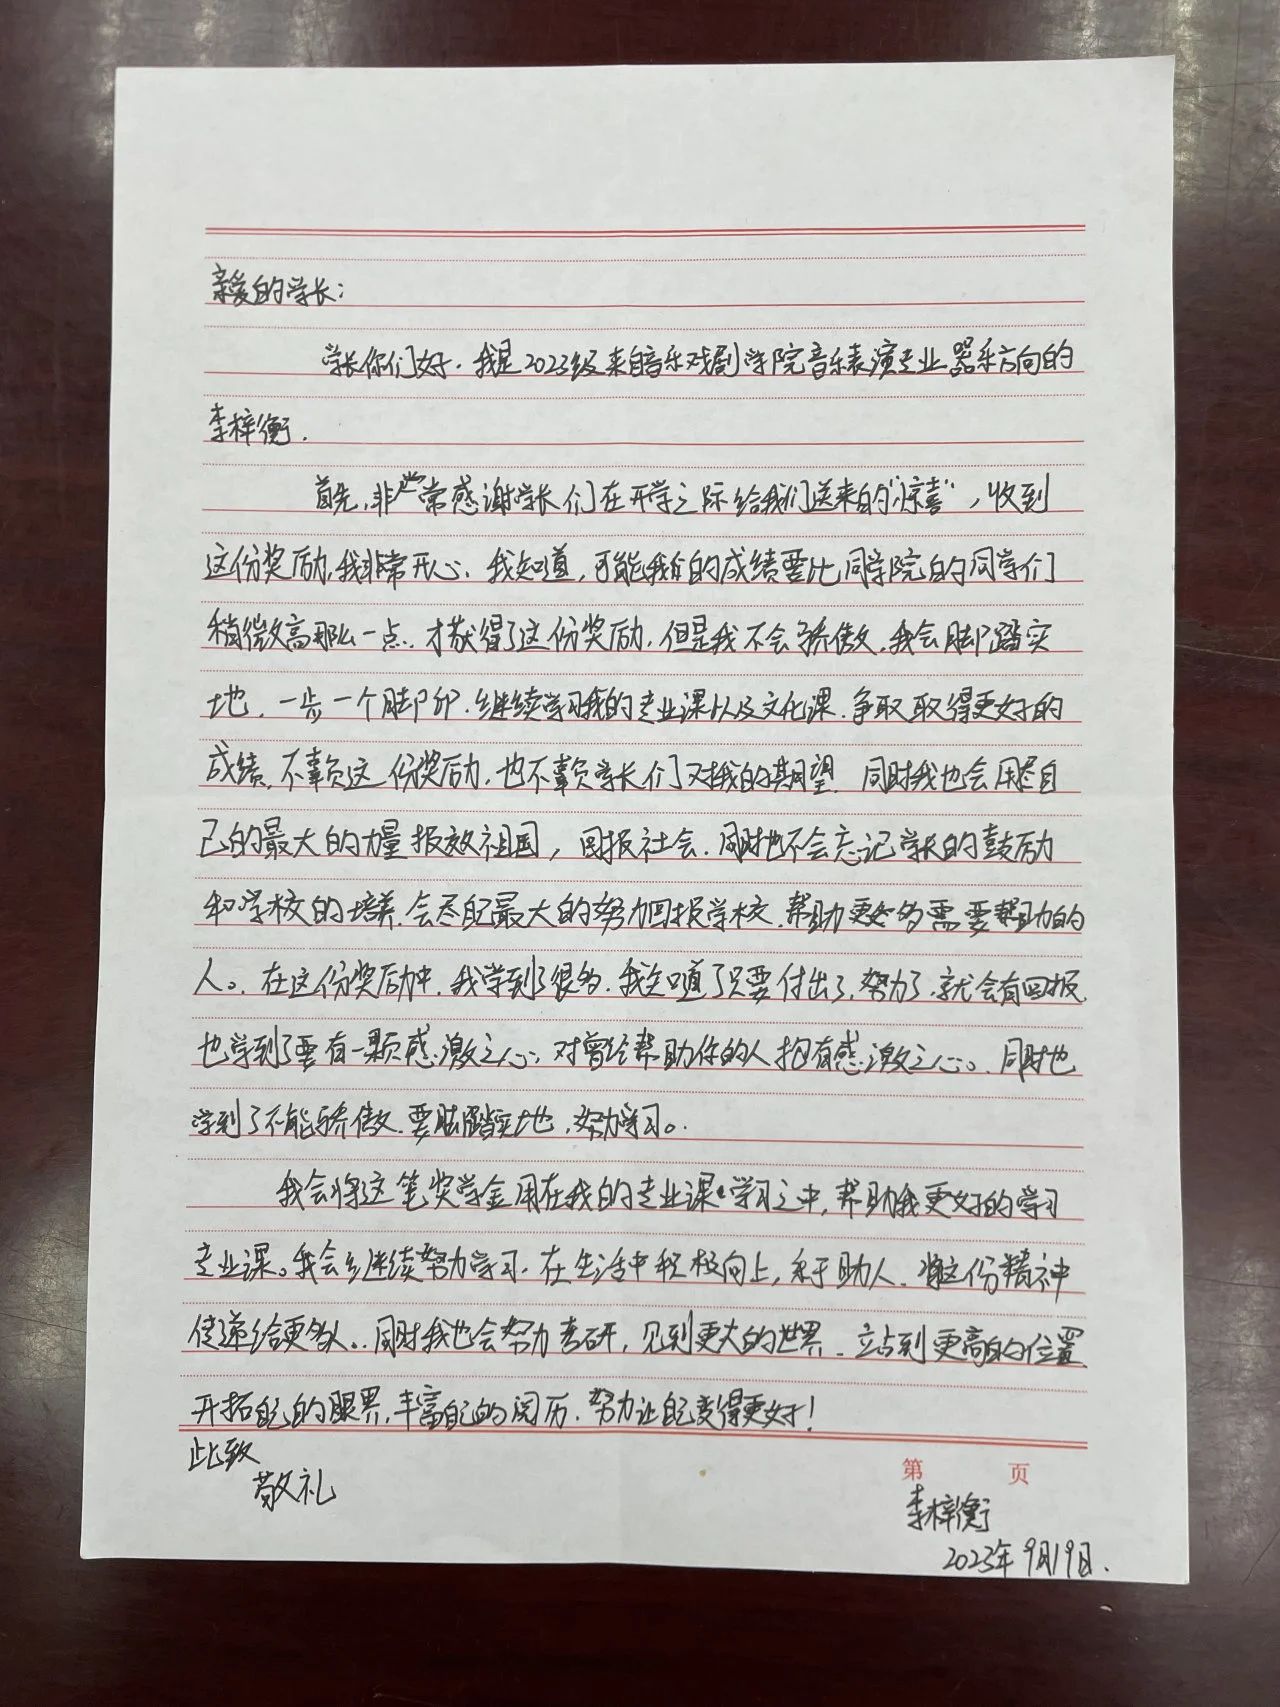 亲爱的学长：
学长你们好，我是2023级来自音乐戏剧学院音乐表演专业器乐方向的
李梓衡.
首先，非常感谢学长们在开学之际给我们送来的"惊喜"，收到
这份奖励，我非常开心、我知道，可能我的成绩要比同学院的同学们
稍微高那么一点，才获得了这份奖励，但是我不会骄傲，我会脚踏实
地，一步一个脚印，继续学习我的专业课以及文化课，争取取得更好的
成绩，不辜负这份奖励，也不辜负学长们对我的期望。同时我也会用尽自
己的最大的力量报效祖国，回报社会.同时也不会忘记学长的鼓励
和学校的培养，会尽自己最大的努力回报学校，帮助更多的需要帮助的
人。在这份奖励中，我学到了很多，我知道了只要付出了，努力了，就会有回报，
也学到了要有一颗感激之心，对曾经帮助你的人抱有感激之心。同时也
学到了不能骄傲，要脚踏实地，努力学习。
我会将这笔奖学金用在我的专业课学习之中，帮助我更好的学习
专业课。我会继续努力学习，在生活中积极向上，乐于助人，将这份精神
传递给更多人。同时我也会努力考研，见到更大的世界，站到更高的位置
开拓自己的眼界，丰富自己的阅历，努力让自己变得更好！
此致
敬礼
第 页
李梓衡
2023年9月19日.